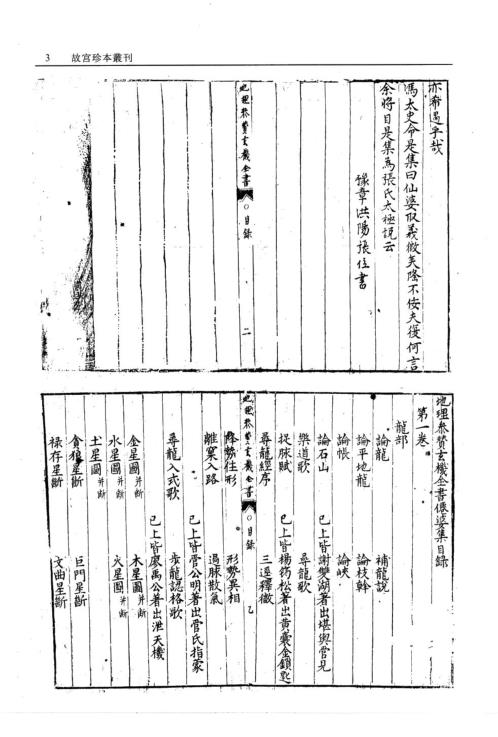 3 故宮珍本叢刊
亦希遇乎哉
馮太史命是集曰仙婆取義微矣隆不佞夫復何言
余將目是集為張氏太極說云
豫章洪陽張位書
地理參贊玄機全書
○目錄
二
地理參贊玄機全書僊婆集目錄
第一卷
龍部
論龍 補龍說
論平地龍 論枝幹
論帳 論峽
論石山 已上皆謝雙湖著出堪輿管見
樂道歌 尋龍歌
捉脉賦 已上皆楊筠松著出黃囊金鎖匙
尋龍經序 三逕釋微
地理參贊玄機全書
○目錄
乙
住形 形勢異相
離窠入路 過脉散氣
已上皆管公明著出管氏指蒙
尋龍入式歌 步龍認格歌
已上皆廖禹公著出泄天機
金星圖并斷 木星圖并斷
水星圖并斷 火星圖并斷
土星圖并斷
貪狼星斷 巨門星斷
祿存星斷 文曲星斷